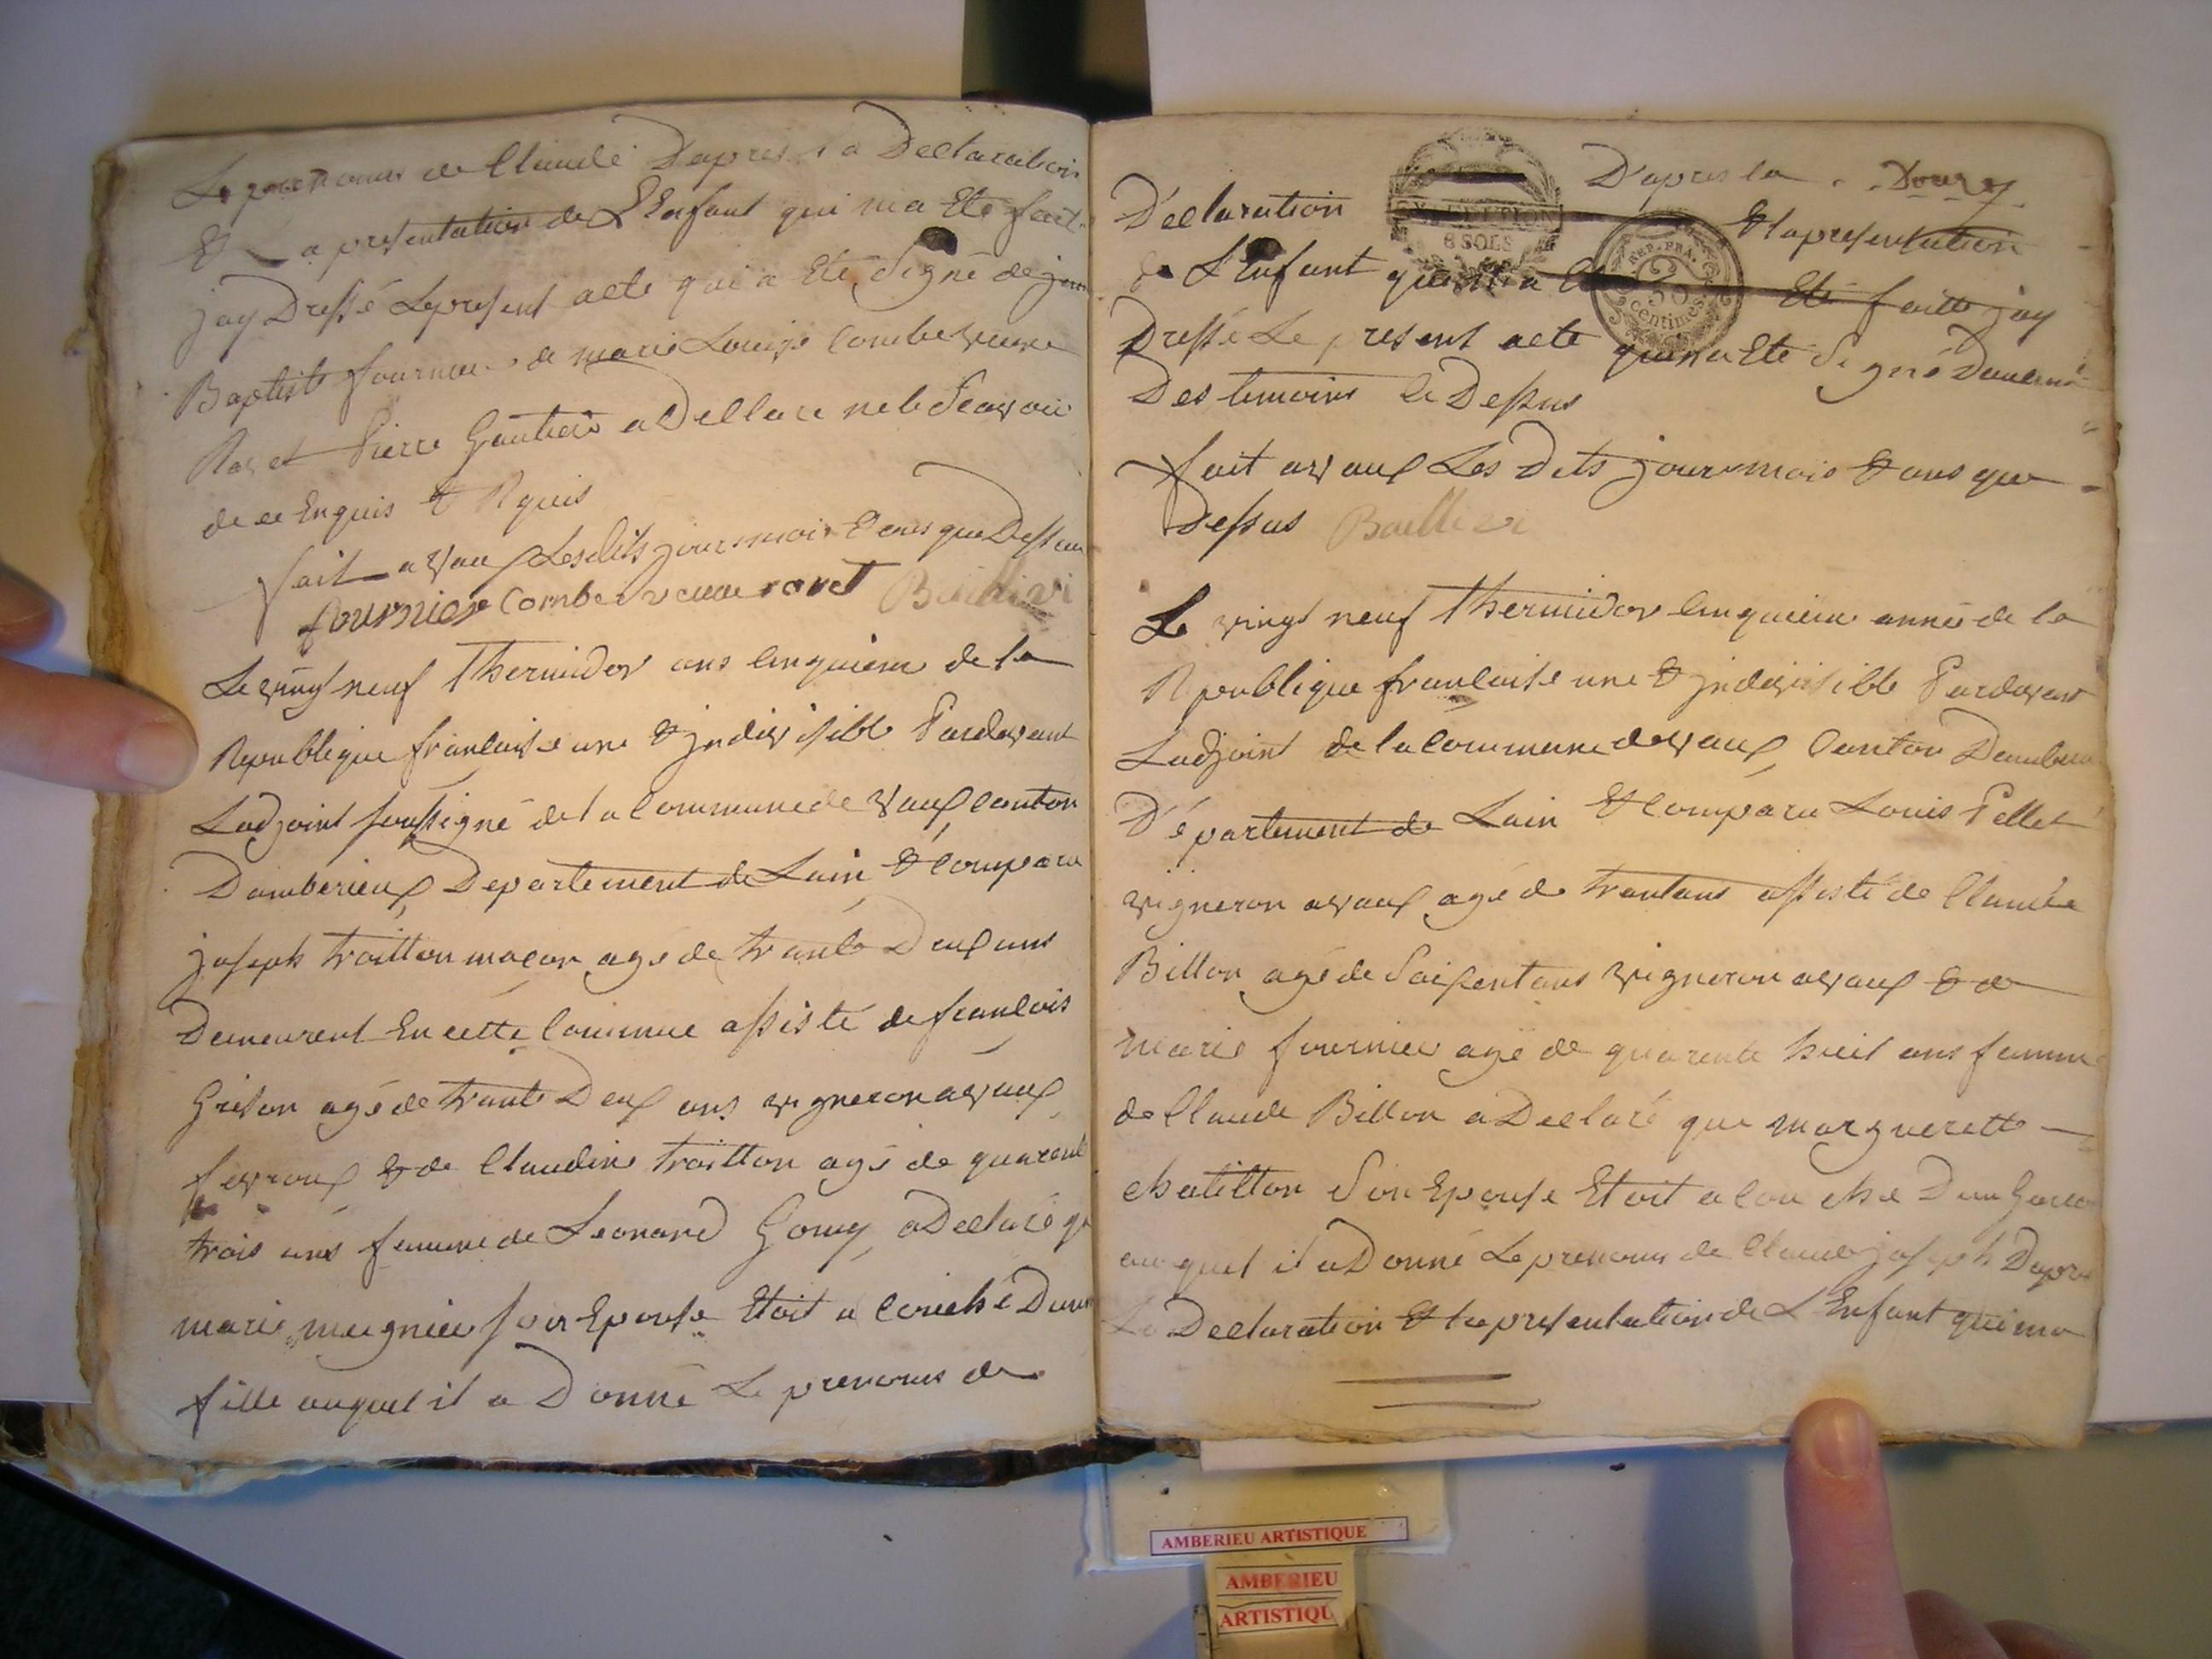 Le prenoms de Claude D'apres la Declaration
Et La presentation de L'Enfant qui ma Eté fait
jay Dressé Le present acte qui a Eté Signé de jean
Baptiste fournier de marie Louise Combe veuve
Ravet Pierre Gautier a Dellaré ne le Scavoir
de ce Enquis & Requis
fait a Vaux Lesdits jour mois & ans que Dessus
fournier Combe veuve ravet
Le vingt neuf Thermidor ans Cinquiem de la
Republique francaise une & jndivisible Pardevant
Ladjoint soussigné de la Commune de Vaux Canton
Damberieux Departement de Lain & Comparu
joseph troitton macon agé de trante Deux ans
Demeurent En cette Commue assisté de francois
Grison agé de trante Deux ans vigneron a vaux
fevroux & de Claudine troitton agé de quarente
trois ans femme de Leonard Gomy a Declaré que
marie mugnier son Epouse Etoit a Couché Dune
fille auquel il a Donné Le prenoms de
D'apres la
D'eclaration & la presentation
de L'Enfant qui
Eté faitte jay
Dressé Le present acte qui na Eté Signé Daucun
Des temoins Ci Dessus
fait a vaux Les Dits jour mois & ans que
Dessus
EXECUTION
8 SOLS
REP. FRA.
centimes
Le vingt neuf Thermidor Cinquiem année de la
Republique francaise une & jndivisible Pardevant
Ladjoint de la Commune de vaux Canton
D'épartement de Lain & Comparu Louis Pellet
vigneron a vaux agé de trantans assisté de Claude
Billon agé de Soixentans vigneron a vaux & de
marie fournier agé de quarente huit ans femme
de Claude Billon a Declaré que marguerette
chatillon Son Epouse Etoit a Couché Dun Garcon
auquel il a Donné Le prenoms de Claude joseph Dapres
La Declaration & la presentation de L'Enfant qui ma
AMBERIEU ARTISTIQUE
AMBERIEU
ARTISTIQU